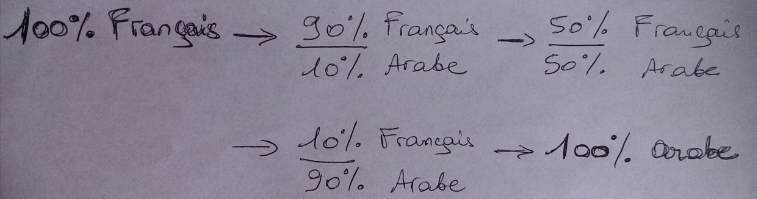 100% Français → 90% Français → 50% Français
10% Arabe 50% Arabe
→ 10% Français → 100% arabe
90% Arabe